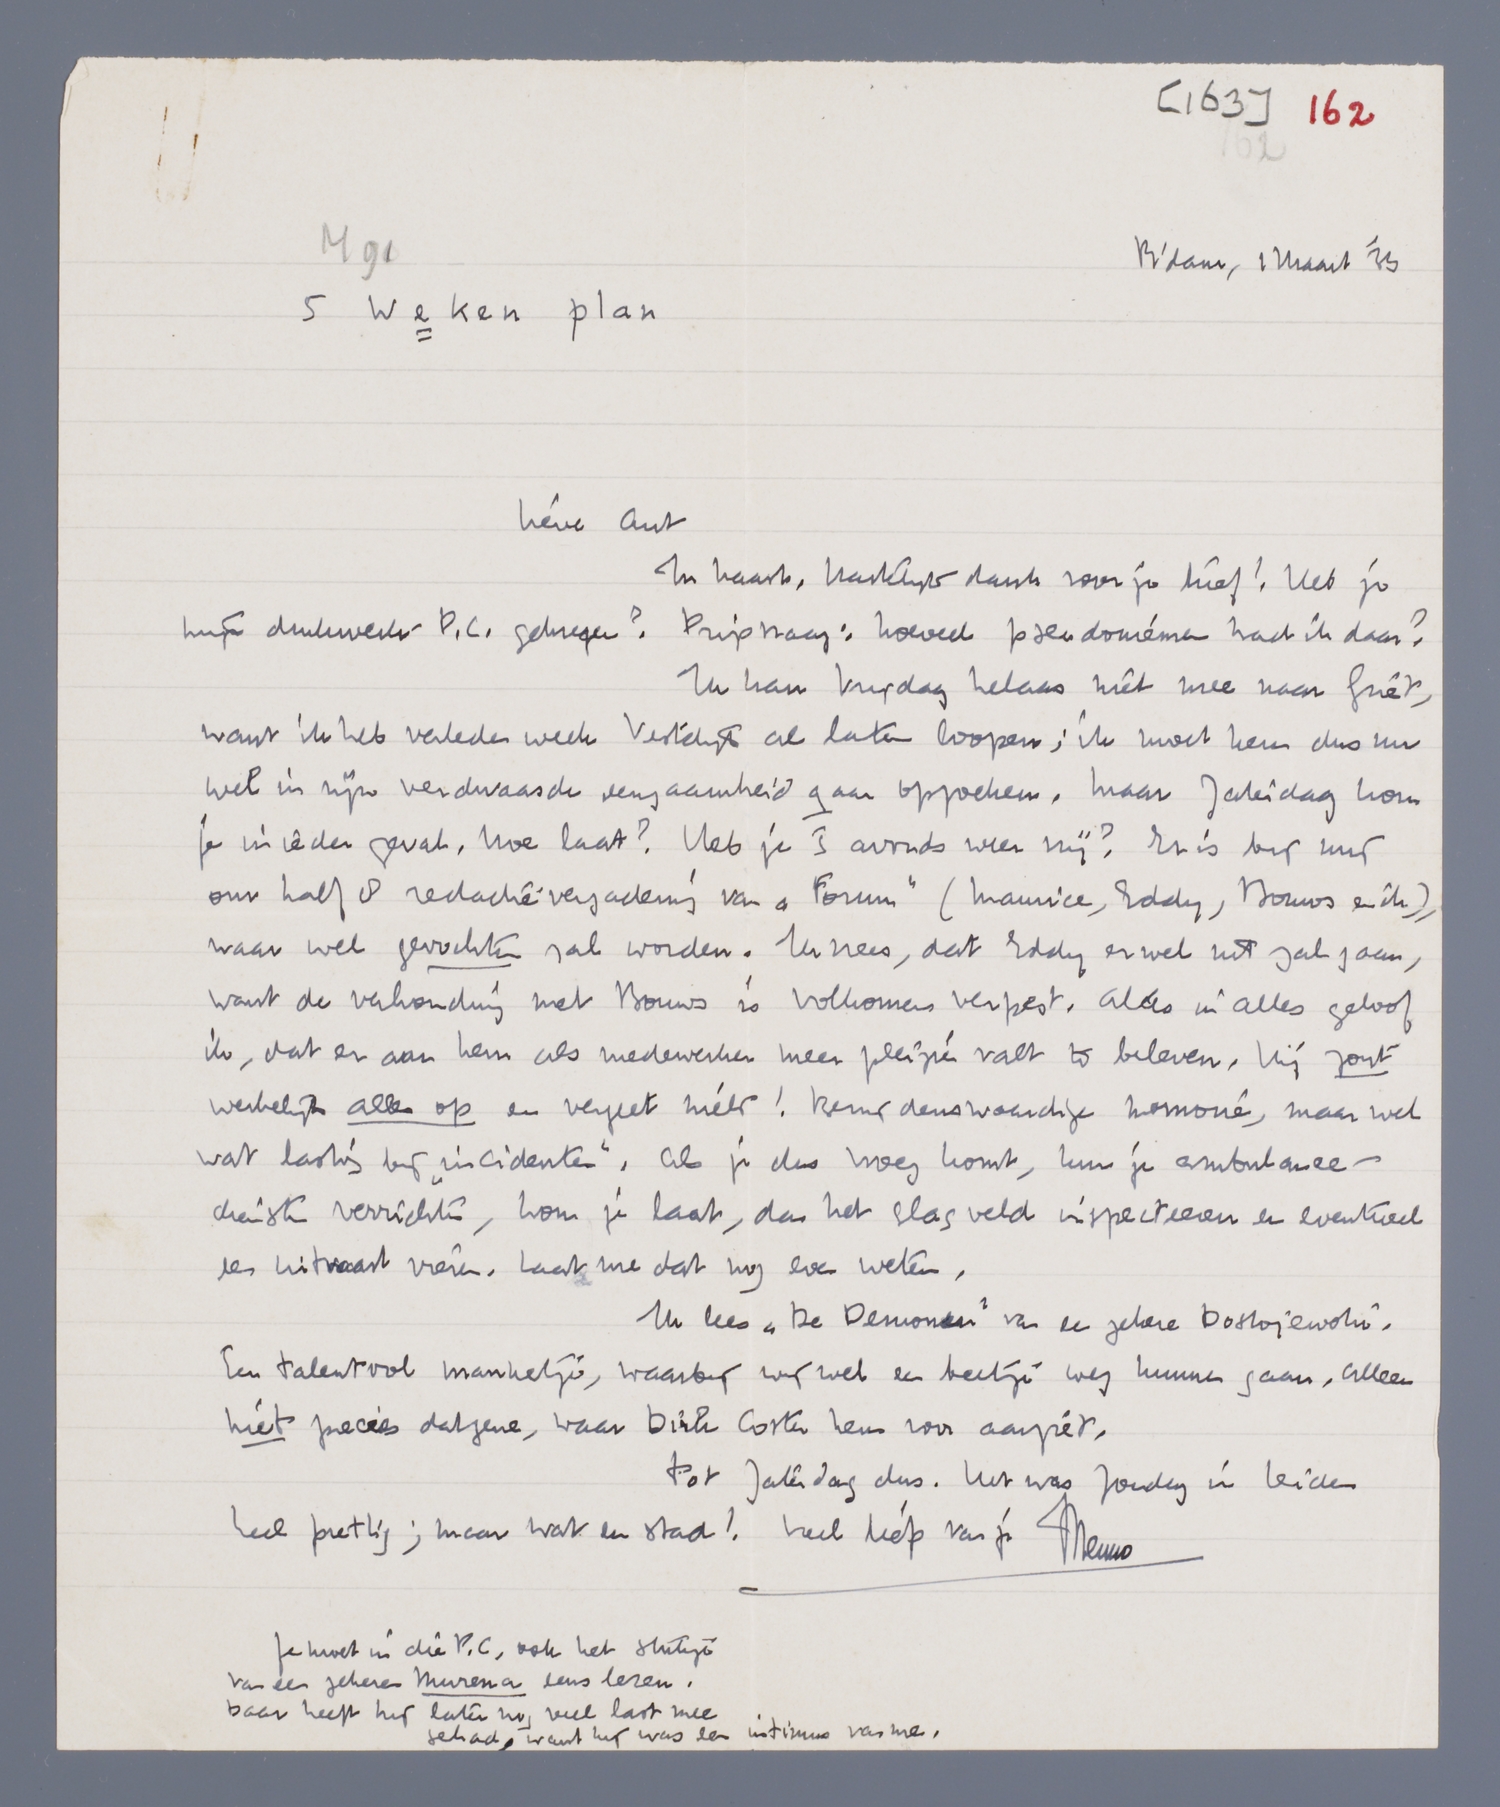 [163] 162
162
M 91
R'dam, 1 Maart '33
5 Weken plan
Lieve Ant
In haast. Hartelijk dank voor je brief! Heb je
mijn drukwerk P.C. gekregen? Prijsvraag: hoeveel pseudoniemen had ik daar?
Ik kan Vrijdag helaas niet mee naar Griet,
want ik heb verleden week Vestdijk al laten loopen; ik moet hem dus nu
wel in zijn verdwaasde eenzaamheid gaan opzoeken. Maar Zaterdag kom
je in ieder geval. Hoe laat? Heb je 's avonds weer vrij? Er is bij mij
om half 8 redactievergadering van „Forum" (Maurice, Eddy, Bouws en ik),
waar wel gevochten zal worden. Ik vrees, dat Eddy er wel uit zal gaan,
want de verhouding met Bouws is volkomen verpest. Alles in alles geloof
ik, dat er aan hem als medewerker meer pleizier valt te beleven. Hij zout
werkelijk alles op en vergeet niets! Benijdenswaardige memorie, maar wel
wat lastig bij „incidenten". Als je dus vroeg komt, kun je ambulance-
diensten verrichten, kom je laat, dan het slagveld inspecteeren en eventueel
een uitvaart vieren. Laat me dat nog even weten.
Ik lees „De Demonen" van een zekere Dostojewski.
Een talentvol mannetje, waarbij wij wel een beetje weg kunnen gaan. Alleen
niet precies datgene, waar Dirk Coster hem voor aanziet.
Tot Zaterdag dus. Het was Zondag in Leiden
heel prettig; maar wat een stad! Veel liefs van je Menno
Je moet in die P.C. ook het stukje
van een zekeren Murena eens lezen.
Daar heeft hij later nog veel last mee
gehad, want hij was een intimus van me.